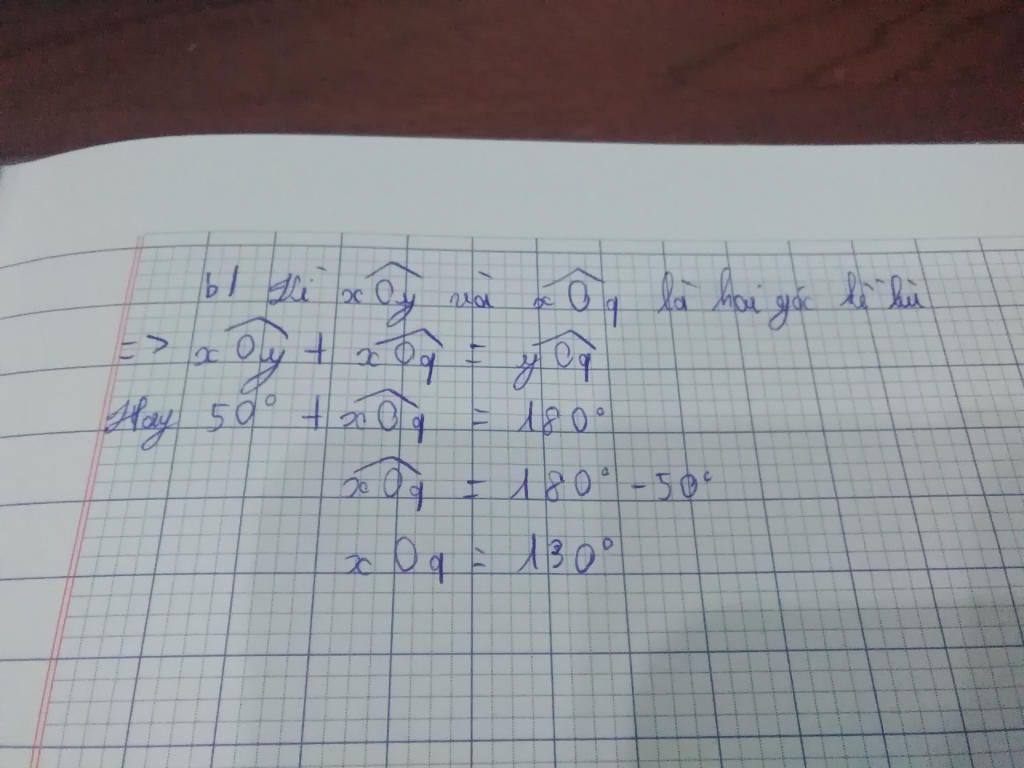 b/ Vì xOy và xOq là hai góc kề bù
=> xOy + xOq = yOq
Hay 50° + xOq = 180°
xOq = 180° - 50°
xOq = 130°